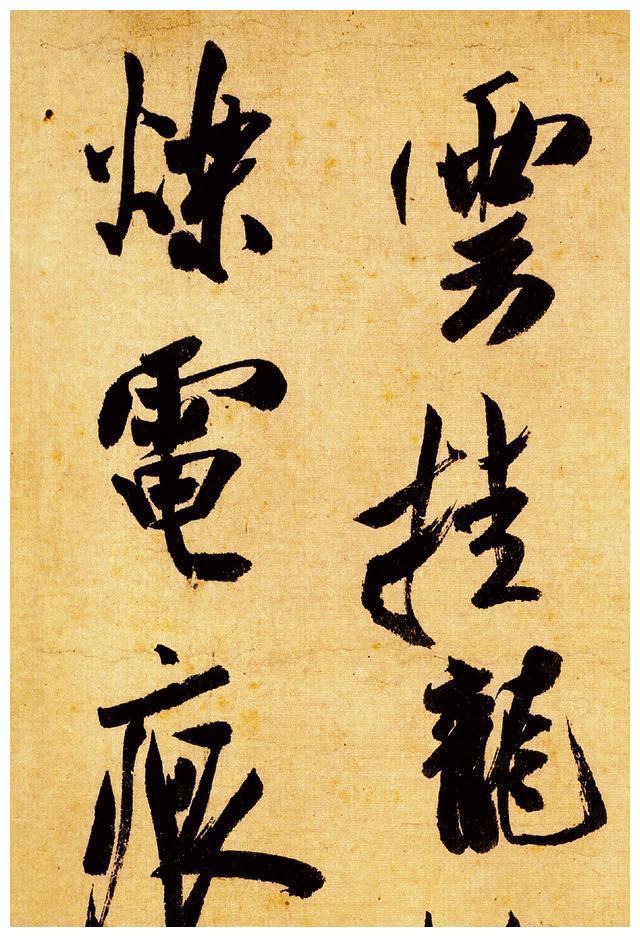 雲挂龍
爍電痕